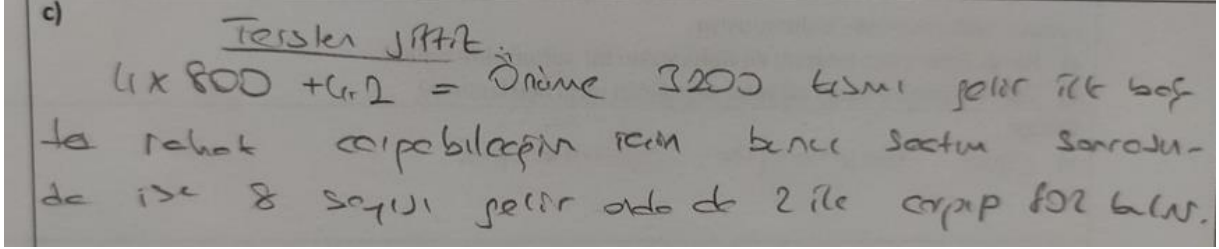 c)
Tersten gittik.
4 x 800 + 4.2 = Önüme 3200 kısmı gelir ilk baş-
ta rahat çarpabileceğim için bunu seçtim sonrasın-
da ise 8 sayısı gelir onda da 2 ile çarpıp 802 bulur.